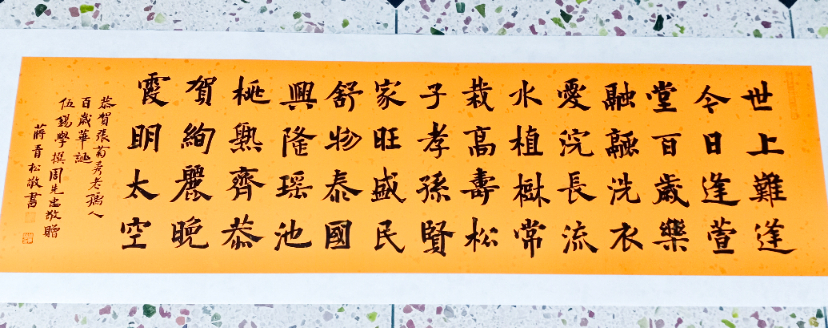 世上難逢
今日逢萱
堂百歲樂
融融洗衣
愛浣長流
水植樹常
栽高壽松
子孝孫賢
家旺盛民
舒物泰國
興隆瑶池
桃熟齊恭
賀絢麗晚
霞明太空
恭賀張菊秀老孺人
百歲華誕
伍錫學撰周先出敬贈
蔣晋松敬書